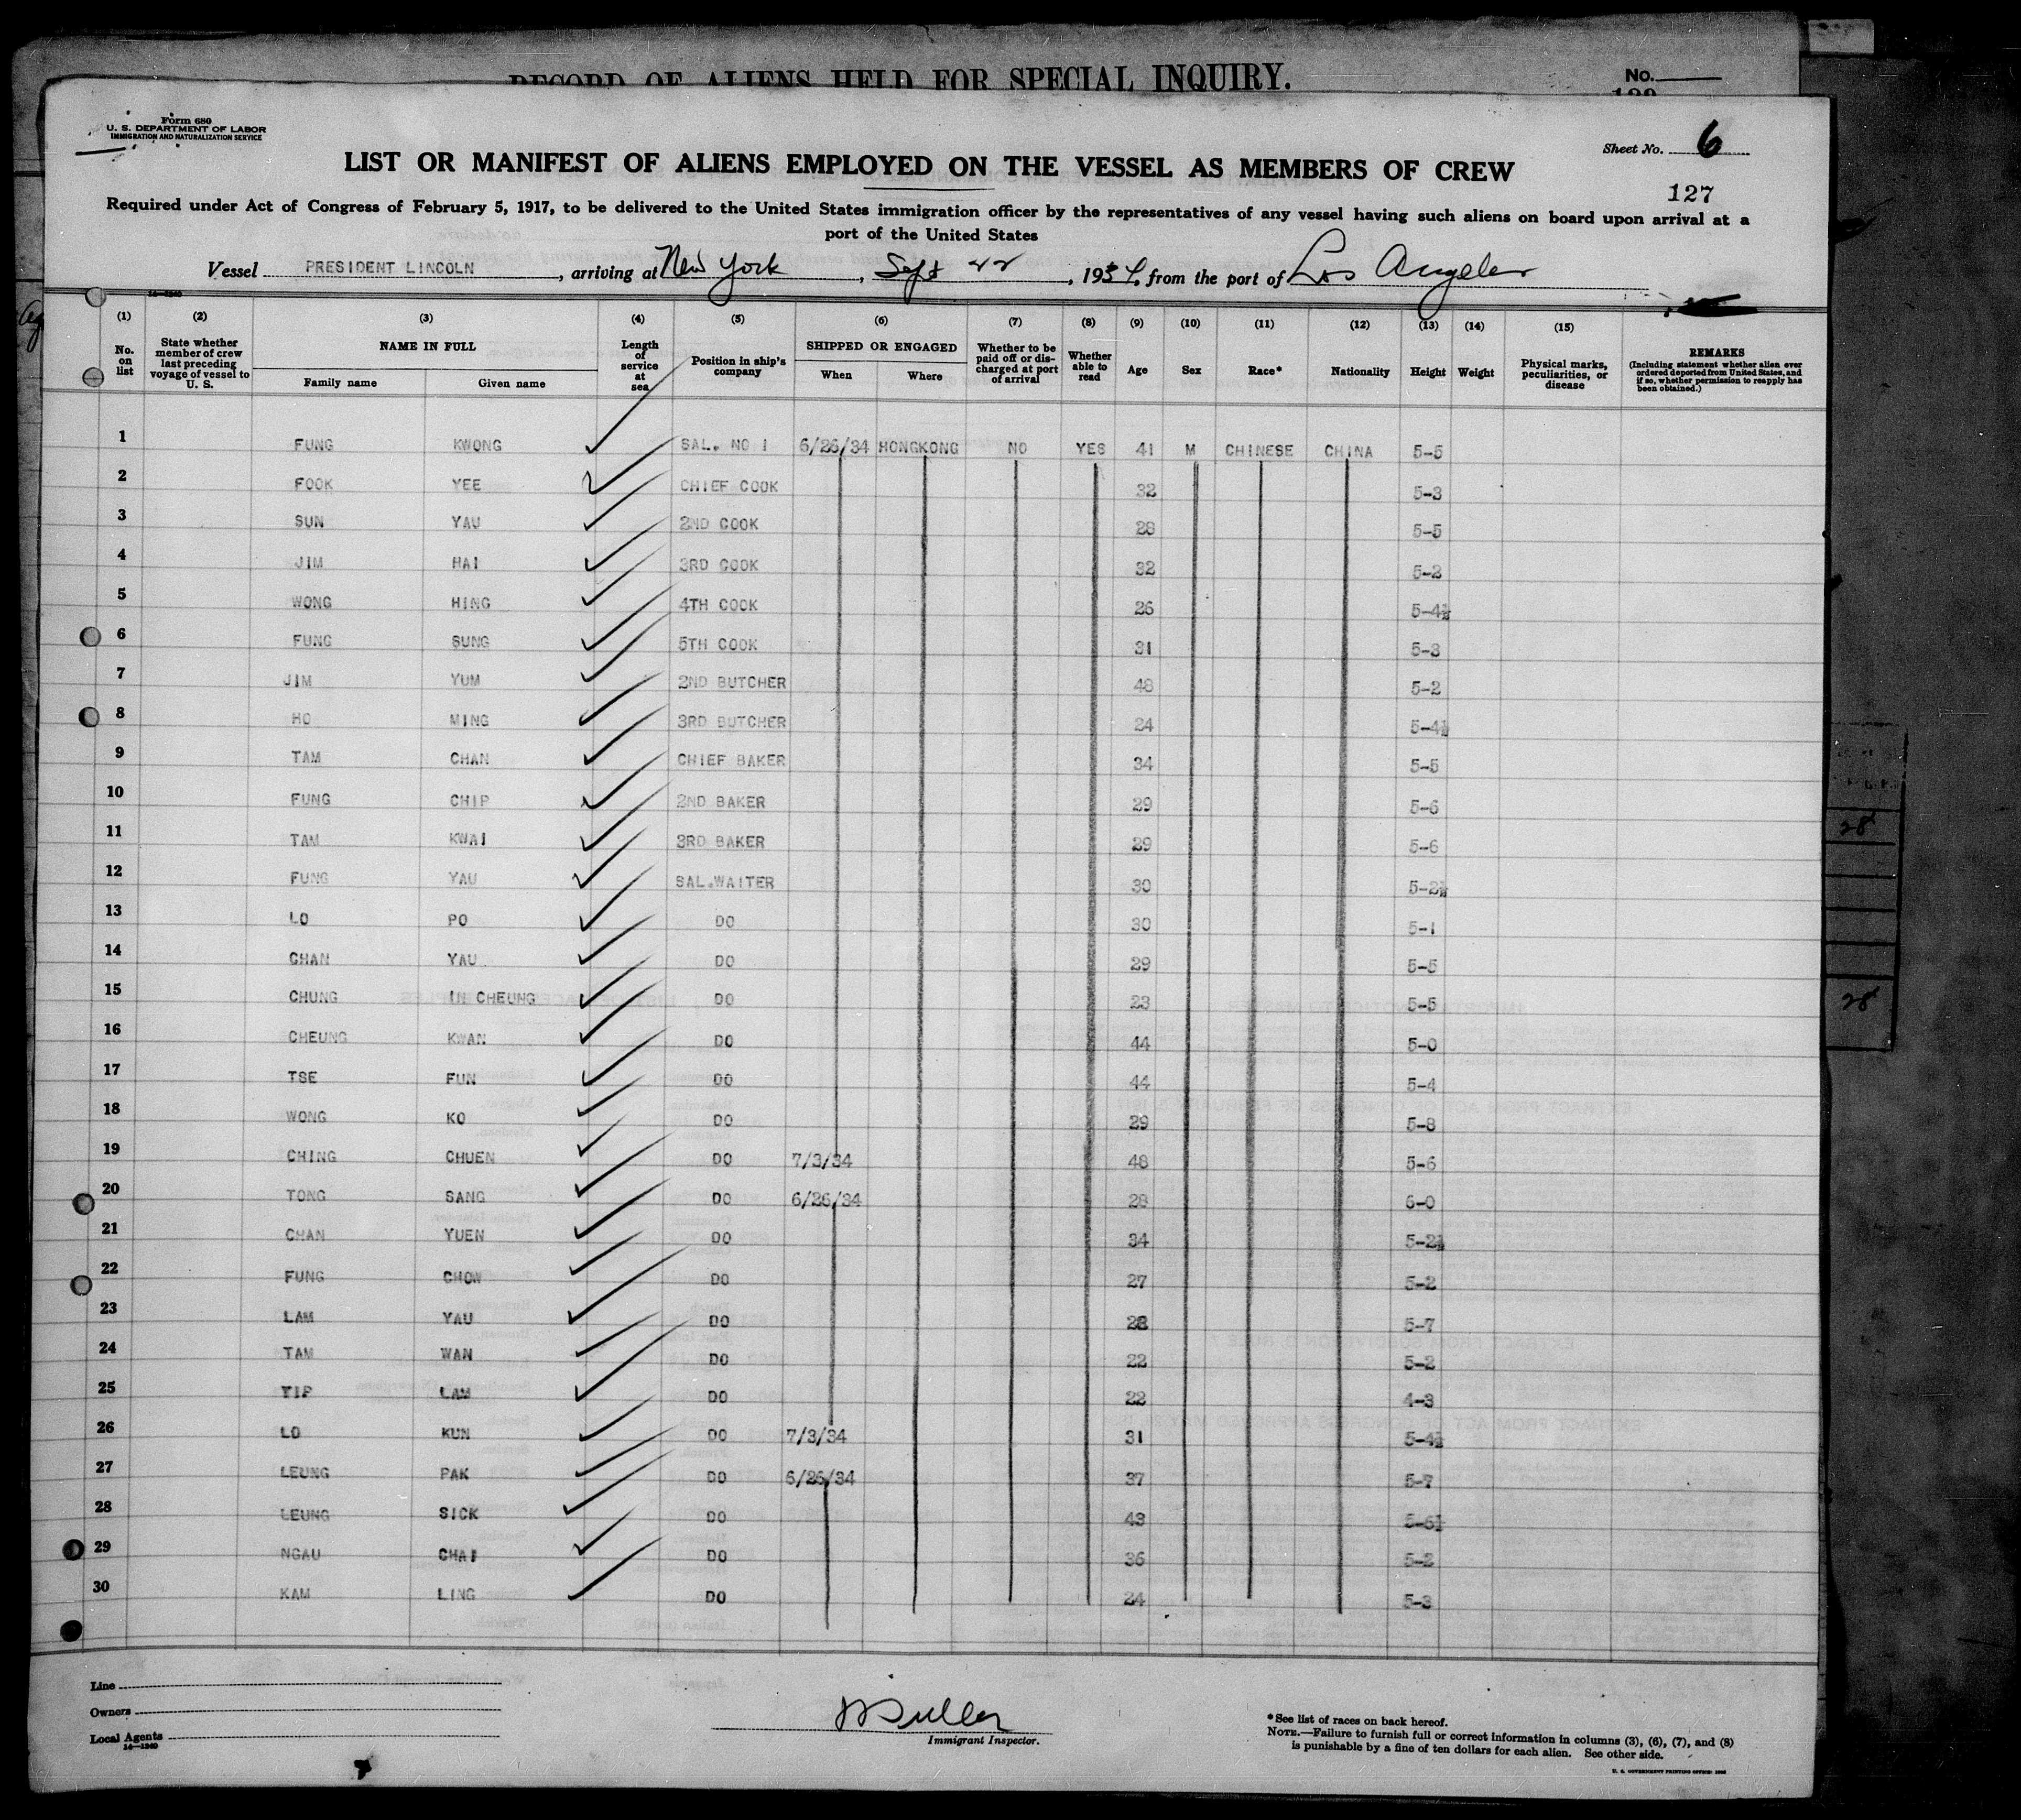 RECORD OF ALIENS HELD FOR SPECIAL INQUIRY.
No.
Form 680
U. S. DEPARTMENT OF LABOR
IMMIGRATION AND NATURALIZATION SERVICE
Sheet No. 6
LIST OR MANIFEST OF ALIENS EMPLOYED ON THE VESSEL AS MEMBERS OF CREW
127
Required under Act of Congress of February 5, 1917, to be delivered to the United States immigration officer by the representatives of any vessel having such aliens on board upon arrival at a
port of the United States
Vessel PRESIDENT LINCOLN, arriving at New York, Sept 22, 1934, from the port of Los Angeles
14—1240
(1) (2) (3) (4) (5) (6) (7) (8) (9) (10) (11) (12) (13) (14) (15)
No. on list
State whether member of crew last preceding voyage of vessel to U. S.
NAME IN FULL
Family name Given name
Length of service at sea
Position in ship's company
SHIPPED OR ENGAGED
When Where
Whether to be paid off or discharged at port of arrival
Whether able to read
Age
Sex
Race*
Nationality
Height
Weight
Physical marks, peculiarities, or disease
REMARKS
(Including statement whether alien ever ordered deported from United States, and if so, whether permission to reapply has been obtained.)
1 FUNG KWONG SAL. NO 1 6/26/34 HONGKONG NO YES 41 M CHINESE CHINA 5-5
2 FOOK YEE CHIEF COOK 32 5-3
3 SUN YAU 2ND COOK 28 5-5
4 JIM HAI 3RD COOK 32 5-2
5 WONG HING 4TH COOK 26 5-4½
6 FUNG SUNG 5TH COOK 31 5-3
7 JIM YUM 2ND BUTCHER 48 5-2
8 HO MING 3RD BUTCHER 24 5-4½
9 TAM CHAN CHIEF BAKER 34 5-5
10 FUNG CHIP 2ND BAKER 29 5-6
11 TAM KWAI 3RD BAKER 29 5-6
12 FUNG YAU SAL.WAITER 30 5-2½
13 LO PO DO 30 5-1
14 CHAN YAU DO 29 5-5
15 CHUNG IN CHEUNG DO 23 5-5
16 CHEUNG KWAN DO 44 5-0
17 TSE FUN DO 44 5-4
18 WONG KO DO 29 5-8
19 CHING CHUEN DO 7/3/34 48 5-6
20 TONG SANG DO 6/26/34 28 6-0
21 CHAN YUEN DO 34 5-2½
22 FUNG CHOW DO 27 5-2
23 LAM YAU DO 28 5-7
24 TAM WAN DO 22 5-2
25 YIP LAM DO 22 4-3
26 LO KUN DO 7/3/34 31 5-4½
27 LEUNG PAK DO 6/26/34 37 5-7
28 LEUNG SICK DO 43 5-6½
29 NGAU CHAI DO 36 5-2
30 KAM LING DO 24 5-3
28
28
Line
Owners
Local Agents
14—1240
Immigrant Inspector.
*See list of races on back hereof.
NOTE.—Failure to furnish full or correct information in columns (3), (6), (7), and (8)
is punishable by a fine of ten dollars for each alien. See other side.